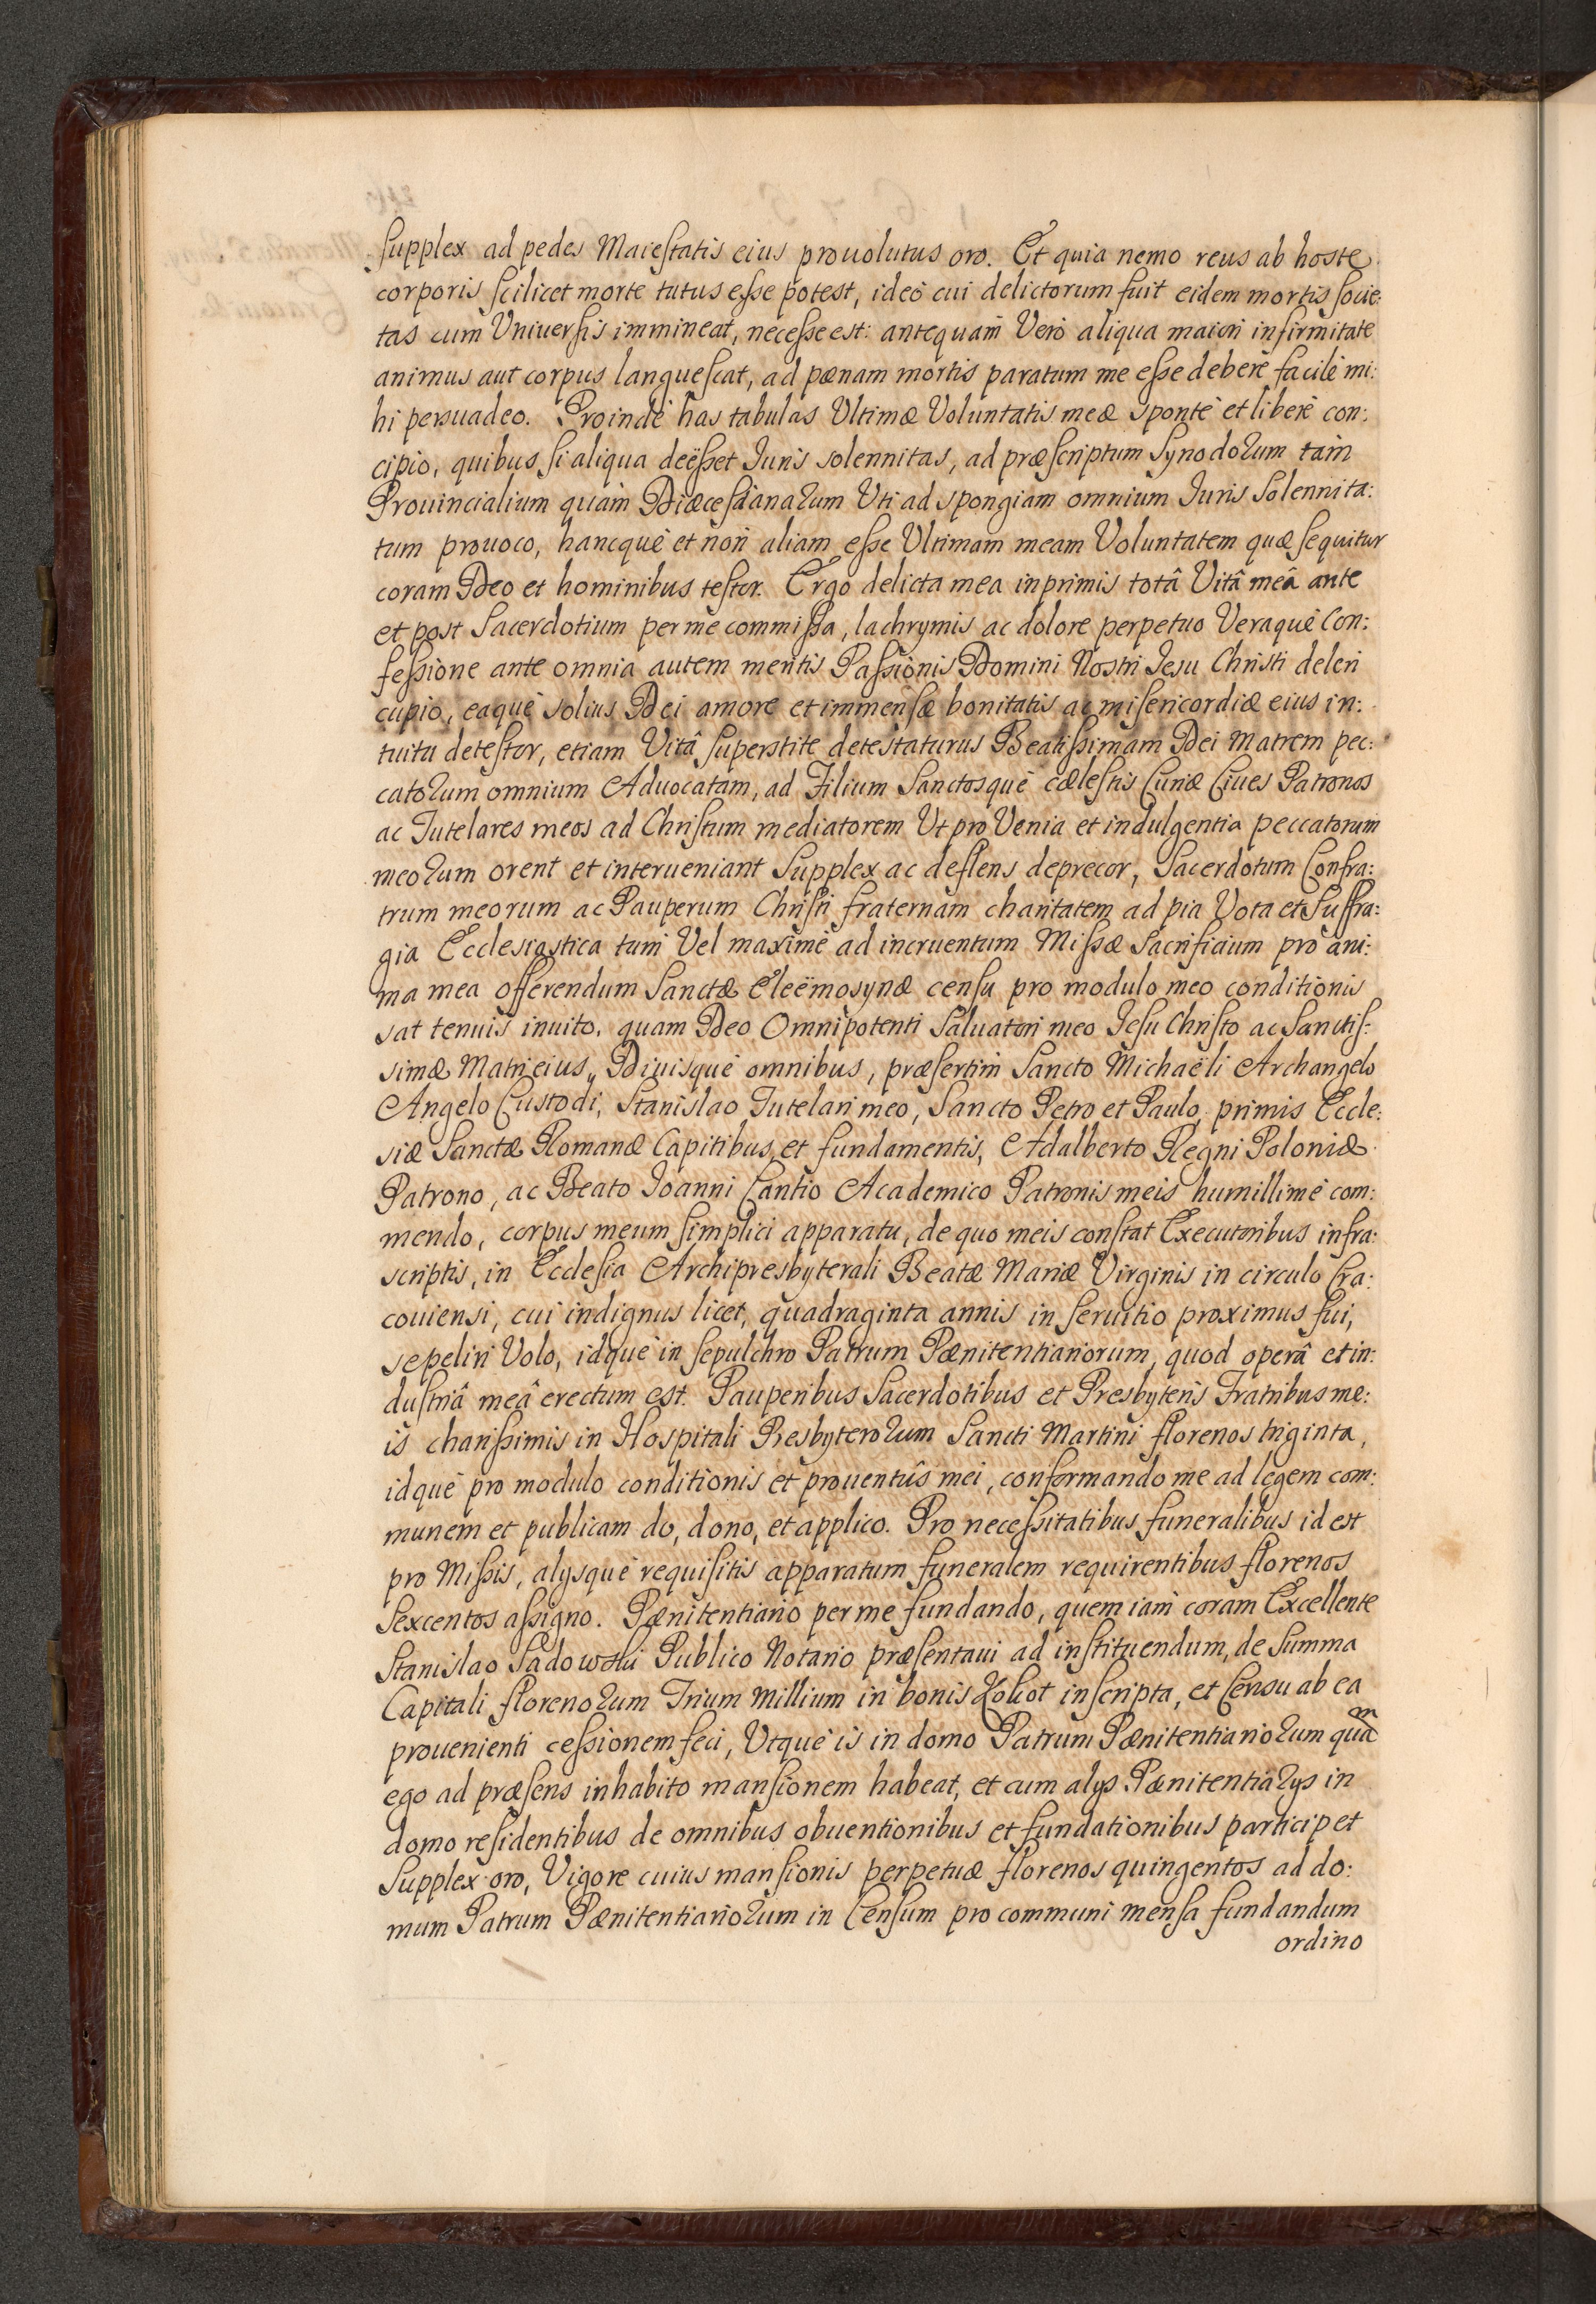 supplex ad pedes Maiestatis eius prouolutus oro. Et quia nemo reus ab hoste
corporis scilicet morte tutus esse potest, ideò cui delictorum fuit eidem mortis socie:
tas cum Vniuersis immineat, necesse est: antequam Verò aliqua maiori infirmitate
animus aut corpus languescat, ad pænam mortis paratum me esse debere facilè mi:
hi persuadeo. Proindè has tabulas Vltimæ Voluntatis meæ spontè et liberè con:
cipio, quibus si aliqua deësset Iuris solennitas, ad præscriptum Synodorum tàm
Prouincialium quàm Diæcesianarum Vti ad spongiam omnium Iuris Solennita:
tum prouoco, hancquè et non aliam esse Vltimam meam Voluntatem quæ sequitur
coram Deo et hominibus testor. Ergo delicta mea inprimis totâ Vitâ meâ ante
et post Sacerdotium per me commissa, lachrymis ac dolore perpetuo Veraquè Con:
fessione ante omnia autem meritis Passionis Domini Nostri Iesu Christi deleri
cupio, eaquè solius Dei amore et immensæ bonitatis ac misericordiæ eius in:
tuitu detestor, etiam Vitâ superstite detestaturus Beatissimam Dei Matrem pec:
catorum omnium Aduocatam, ad Filium Sanctosquè cælestis Curiæ Ciues Patronos
ac Tutelares meos ad Christum mediatorem Vt pro Venia et indulgentia peccatorum
meorum orent et interueniant Supplex ac deflens deprecor, Sacerdotum Confra:
trum meorum ac Pauperum Christi fraternam charitatem ad pia Vota et Suffra:
gia Ecclesiastica tum Vel maximè ad incruentum Missæ Sacrificium pro ani:
ma mea offerendum Sanctæ Eleëmosynæ censu pro modulo meo conditionis
sat tenuis inuito, quam Deo Omnipotenti Saluatori meo Iesu Christo ac Sanctis:
simæ Matri eius, Diuisquè omnibus, præsertim Sancto Michaëli Archangelo
Angelo Custodi, Stanislao Tutelari meo, Sancto Petro et Paulo primis Eccle:
siæ Sanctæ Romanæ Capitibus et fundamentis, Adalberto Regni Poloniæ
Patrono, ac Beato Ioanni Cantio Academico Patronis meis humillimè com:
mendo, corpus meum simplici apparatu, de quo meis constat Executoribus infra:
scriptis, in Ecclesia Archipresbyterali Beatæ Mariæ Virginis in circulo Cra:
couiensi, cui indignus licet, quadraginta annis in seruitio proximus fui,
sepeliri Volo, idquè in sepulchro Patrum Pænitentiariorum, quod operâ et in:
dustriâ meâ erectum est. Pauperibus Sacerdotibus et Presbyteris Fratribus me:
is charissimis in Hospitali Presbyterorum Sancti Martini florenos triginta,
idquè pro modulo conditionis et prouentûs mei, conformando me ad legem com:
munem et publicam do, dono, et applico. Pro necessitatibus funeralibus id est
pro Missis, alijsquè requisitis apparatum funeralem requirentibus florenos
Sexcentos assigno. Pænitentiario per me fundando, quem iam coram Excellente
Stanislao Sadowski Publico Notario præsentaui ad instituendum, de Summa
Capitali florenorum Trium Millium in bonis inscripta, et Censu ab ea
prouenienti cessionem feci, Vtquè is in domo Patrum Pænitentiariorum quam
ego ad præsens inhabito mansionem habeat, et cum alijs Pænitentiarijs in
domo residentibus de omnibus obuentionibus et fundationibus participet
Supplex oro, Vigore cuius mansionis perpetuæ florenos quingentos ad do:
mum Patrum Pænitentiariorum in Censum pro communi mensa fundandum
ordino